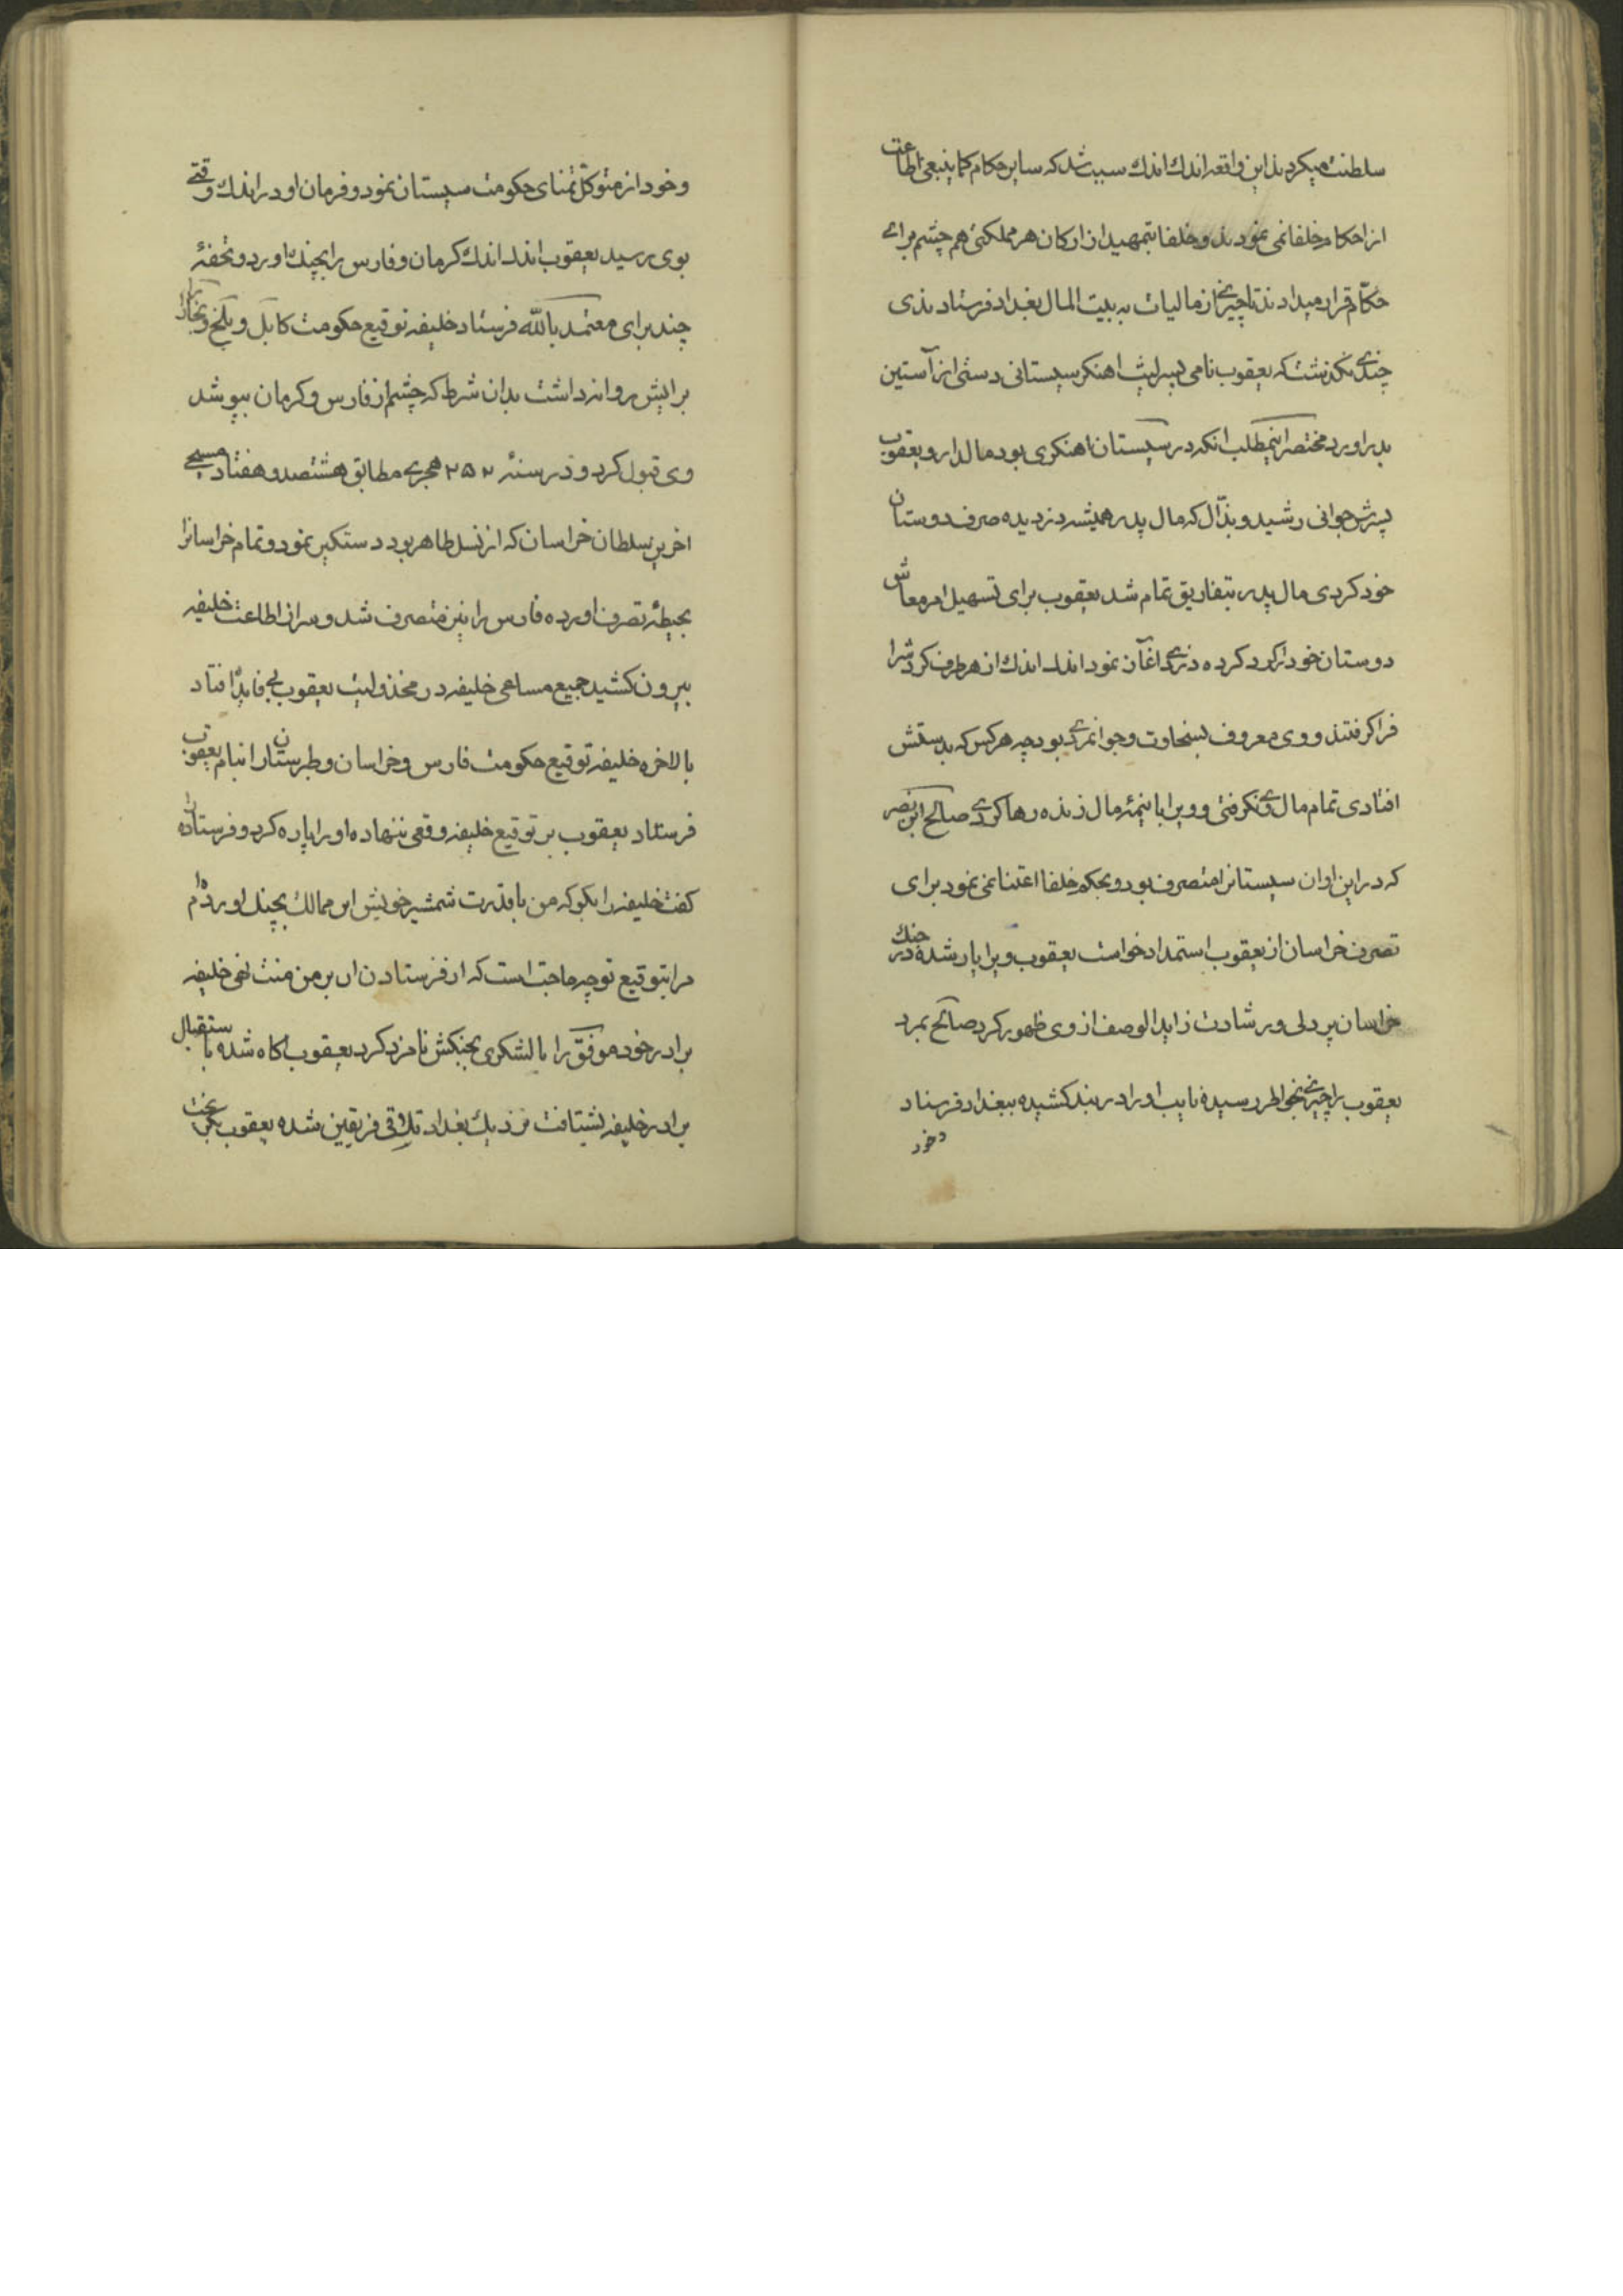 سلطنت میکردند این واقعه اندك اندك سبب شد که سایر حکام کما ینبغی اطاعت
از احکام خلفا نمی نمودند و خلفا بتمهید از ارکان هر مملکتی هم چشم برای
حکّام قرار میدادند تا چیزی از مالیات به بیت المال بغداد فرستادندی
چندی نگذشت که یعقوب نامی پسر لیث اهنکر سیستانی دستی از آستین
بدر اورد مختصر اینمطلب انکه در سیستان اهنکری بود مالدار و یعقوب
پسرش جوانی رشید و بذّال که مال پدر همیشه دزدیده صرف دوستان
خود کردی مال پدر بتفاریق تمام شد یعقوب برای تسهیل امر معاش
دوستان خود را کرد کرده دزدی اغاز نمود اندك اندك از هر طرف کردش را
فرا کرفتند و وی معروف بسخاوت و جوانمردی بود چه هر کس که بدستش
افتادی تمام مال وی نکرفتی و ویرا با نیمهٔ مال زنده رها کردی صالح ابن نصر
که در این اوان سیستانرا متصرف بود و بحکم خلفا اعتنا نمی نمود برای
تصرف خراسان از یعقوب استمداد خواست یعقوب ویرا یار شده در جنك
خراسان پر دلی و رشادت زاید الوصف از وی ظهور کرد صالح بمرد
یعقوب را چیزی بخواطر رسیده نایب او را در بند کشیده ببغداد فرستاد
و خود
و خود از متوکّل تمنای حکومت سیستان نمود و فرمان او در اندك وقتی
بوی رسید یعقوب اندك اندك کرمان و فارس را بچنك اورد و تحفهٔ
چند برای معتمد بالله فرستاد خلیفه توقیع حکومت کابل و بلخ و بخارا
برایش روانه داشت بدان شرط که چشم از فارس و کرمان بپوشد
وی قبول کرد و در سنهٔ ۲۵۲ هجری مطابق هشتصد و هفتاد مسیحی
اخرین سلطان خراسان که از نسل طاهر بود دستکیر نمود و تمام خراسانرا
بحیطهٔ تصرف اورده فارس را نیز متصرف شد و سر از اطاعت خلیفه
بیرون کشید جمیع مساعی خلیفه در مخذولیت یعقوب بی فایده افتاد
بالاخره خلیفه توقیع حکومت فارس و خراسان و طبرستان را بنام یعقوب
فرستاد یعقوب بر توقیع خلیفه وقعی ننهاده او را پاره کرد و فرستاده را
کفت خلیفه را بکو که من با قدرت شمشیر خویش این ممالك بچنك اورده ام
مرا بتوقیع تو چه حاجت است که از فرستادن ان بر من منت نهی خلیفه
برادر خود موفّق را با لشکری بجنکش نامزد کرد یعقوب اکاه شده باستقبال
برادر خلیفه بشتافت نزدیك بغداد تلاقی فریقین شده یعقوب بکریخت